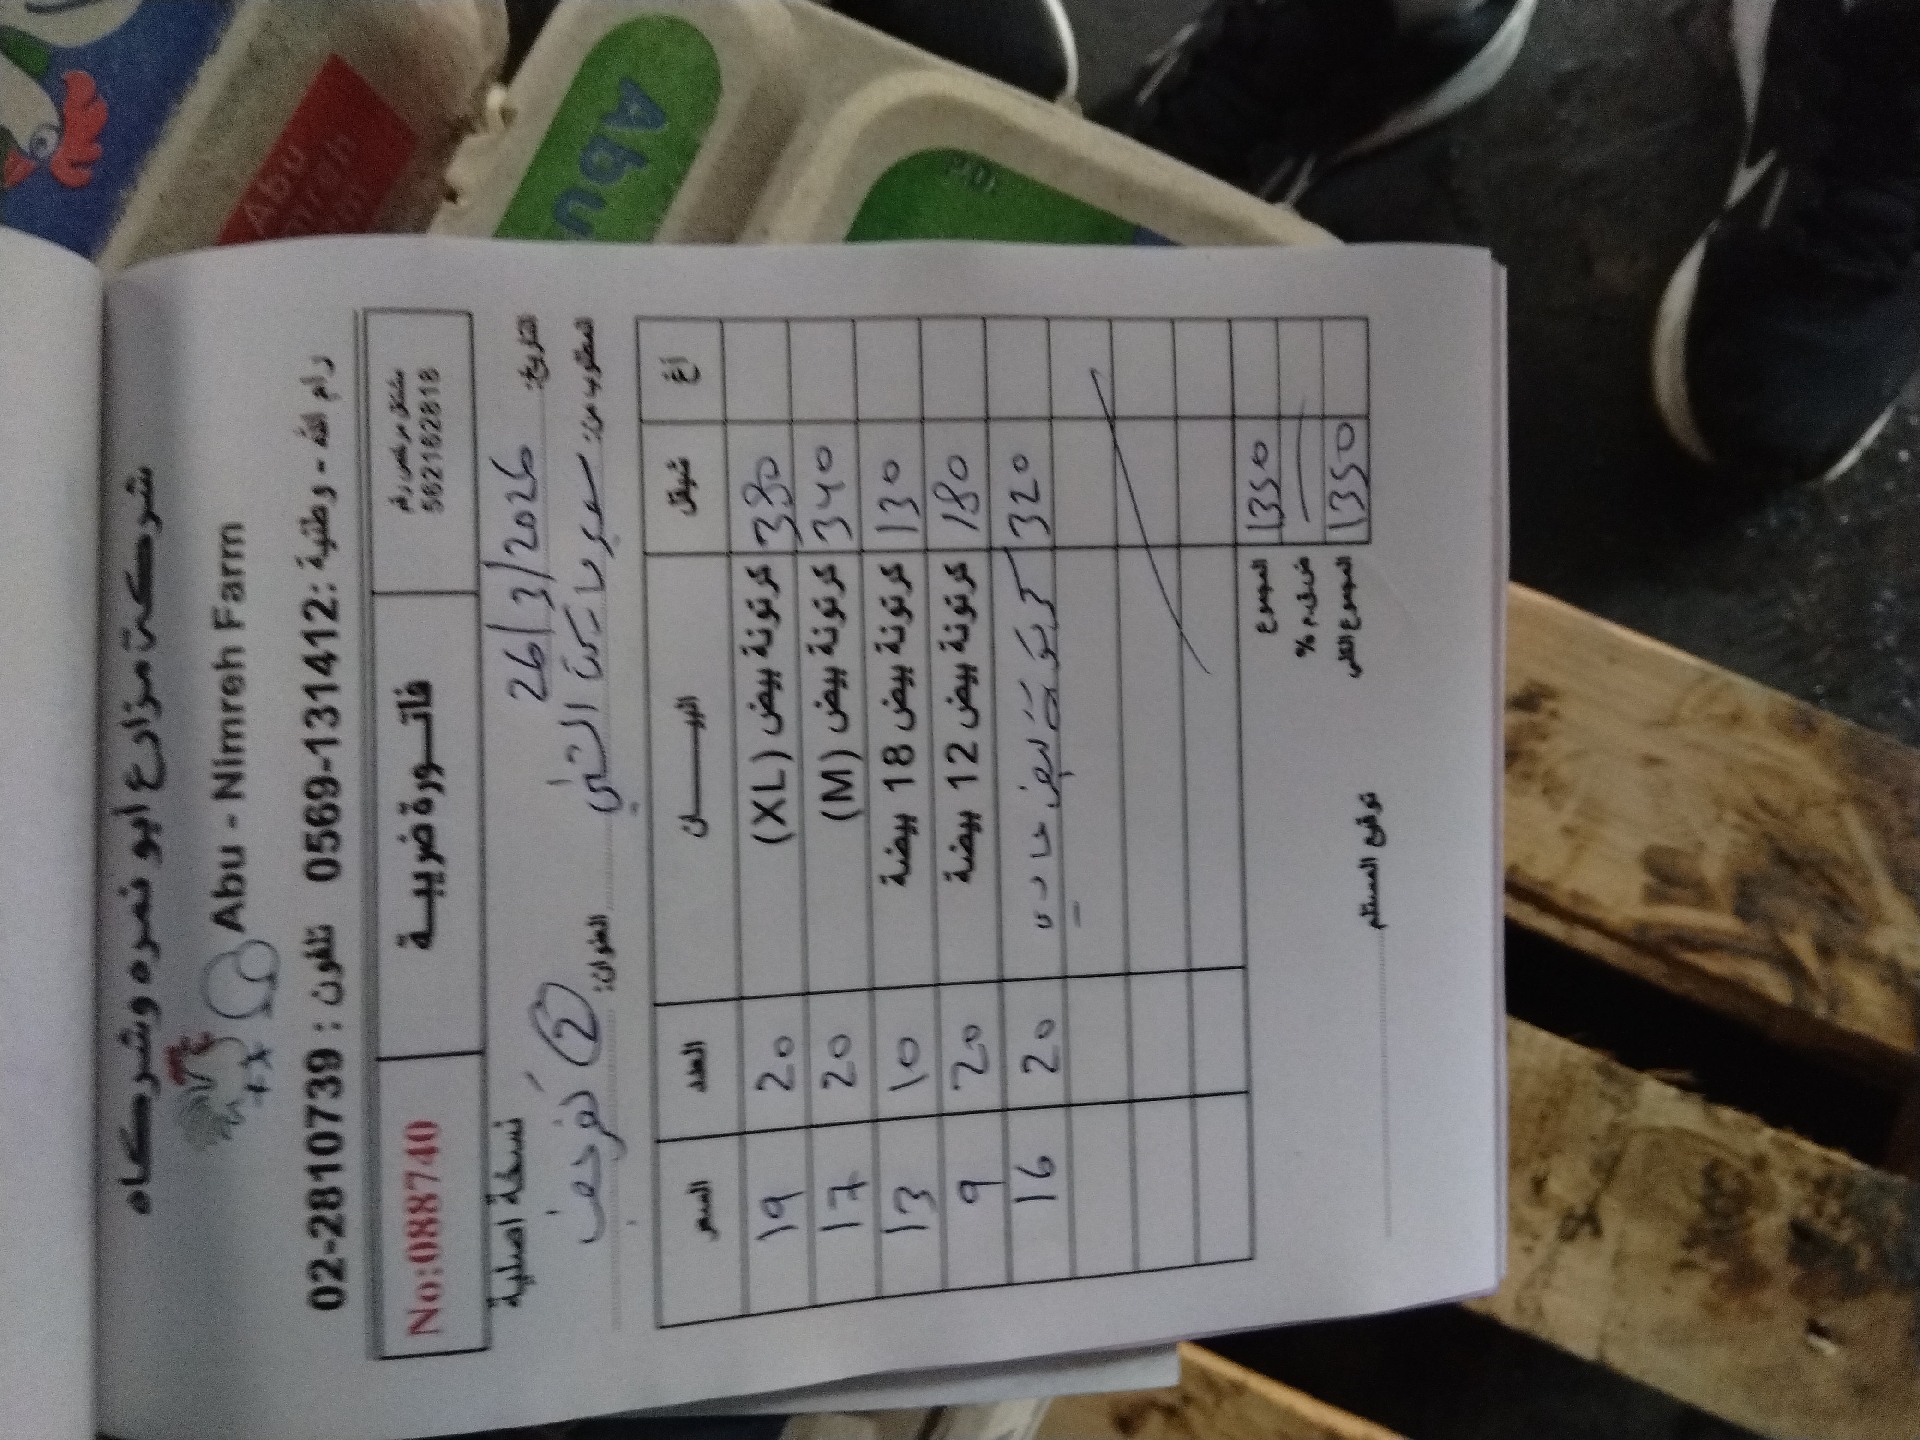 شركة مزارع ابو نمره وشركاه
Abu - Nimreh Farm
رام الله - وطنية : 0569-131412 تلفون : 02-2810739
مشتغل مرخص رقم
562162818
فاتورة ضريبية
No:088740
التاريخ: 26/3/2026
نسخة اصلية
المطلوب من: سوبر ماركت
العنوان: كفر عقب (2)
أغ شيقل البيان العدد السعر
380 كرتونة بيض (XL) 20 19
340 كرتونة بيض (M) 20 17
130 كرتونة بيض 18 بيضة 10 13
180 كرتونة بيض 12 بيضة 20 9
320 بيض 20 16
المجموع 1350
ض.ق.م %
المجموع الكلي 1350
توقيع المستلم
Abu
Abu